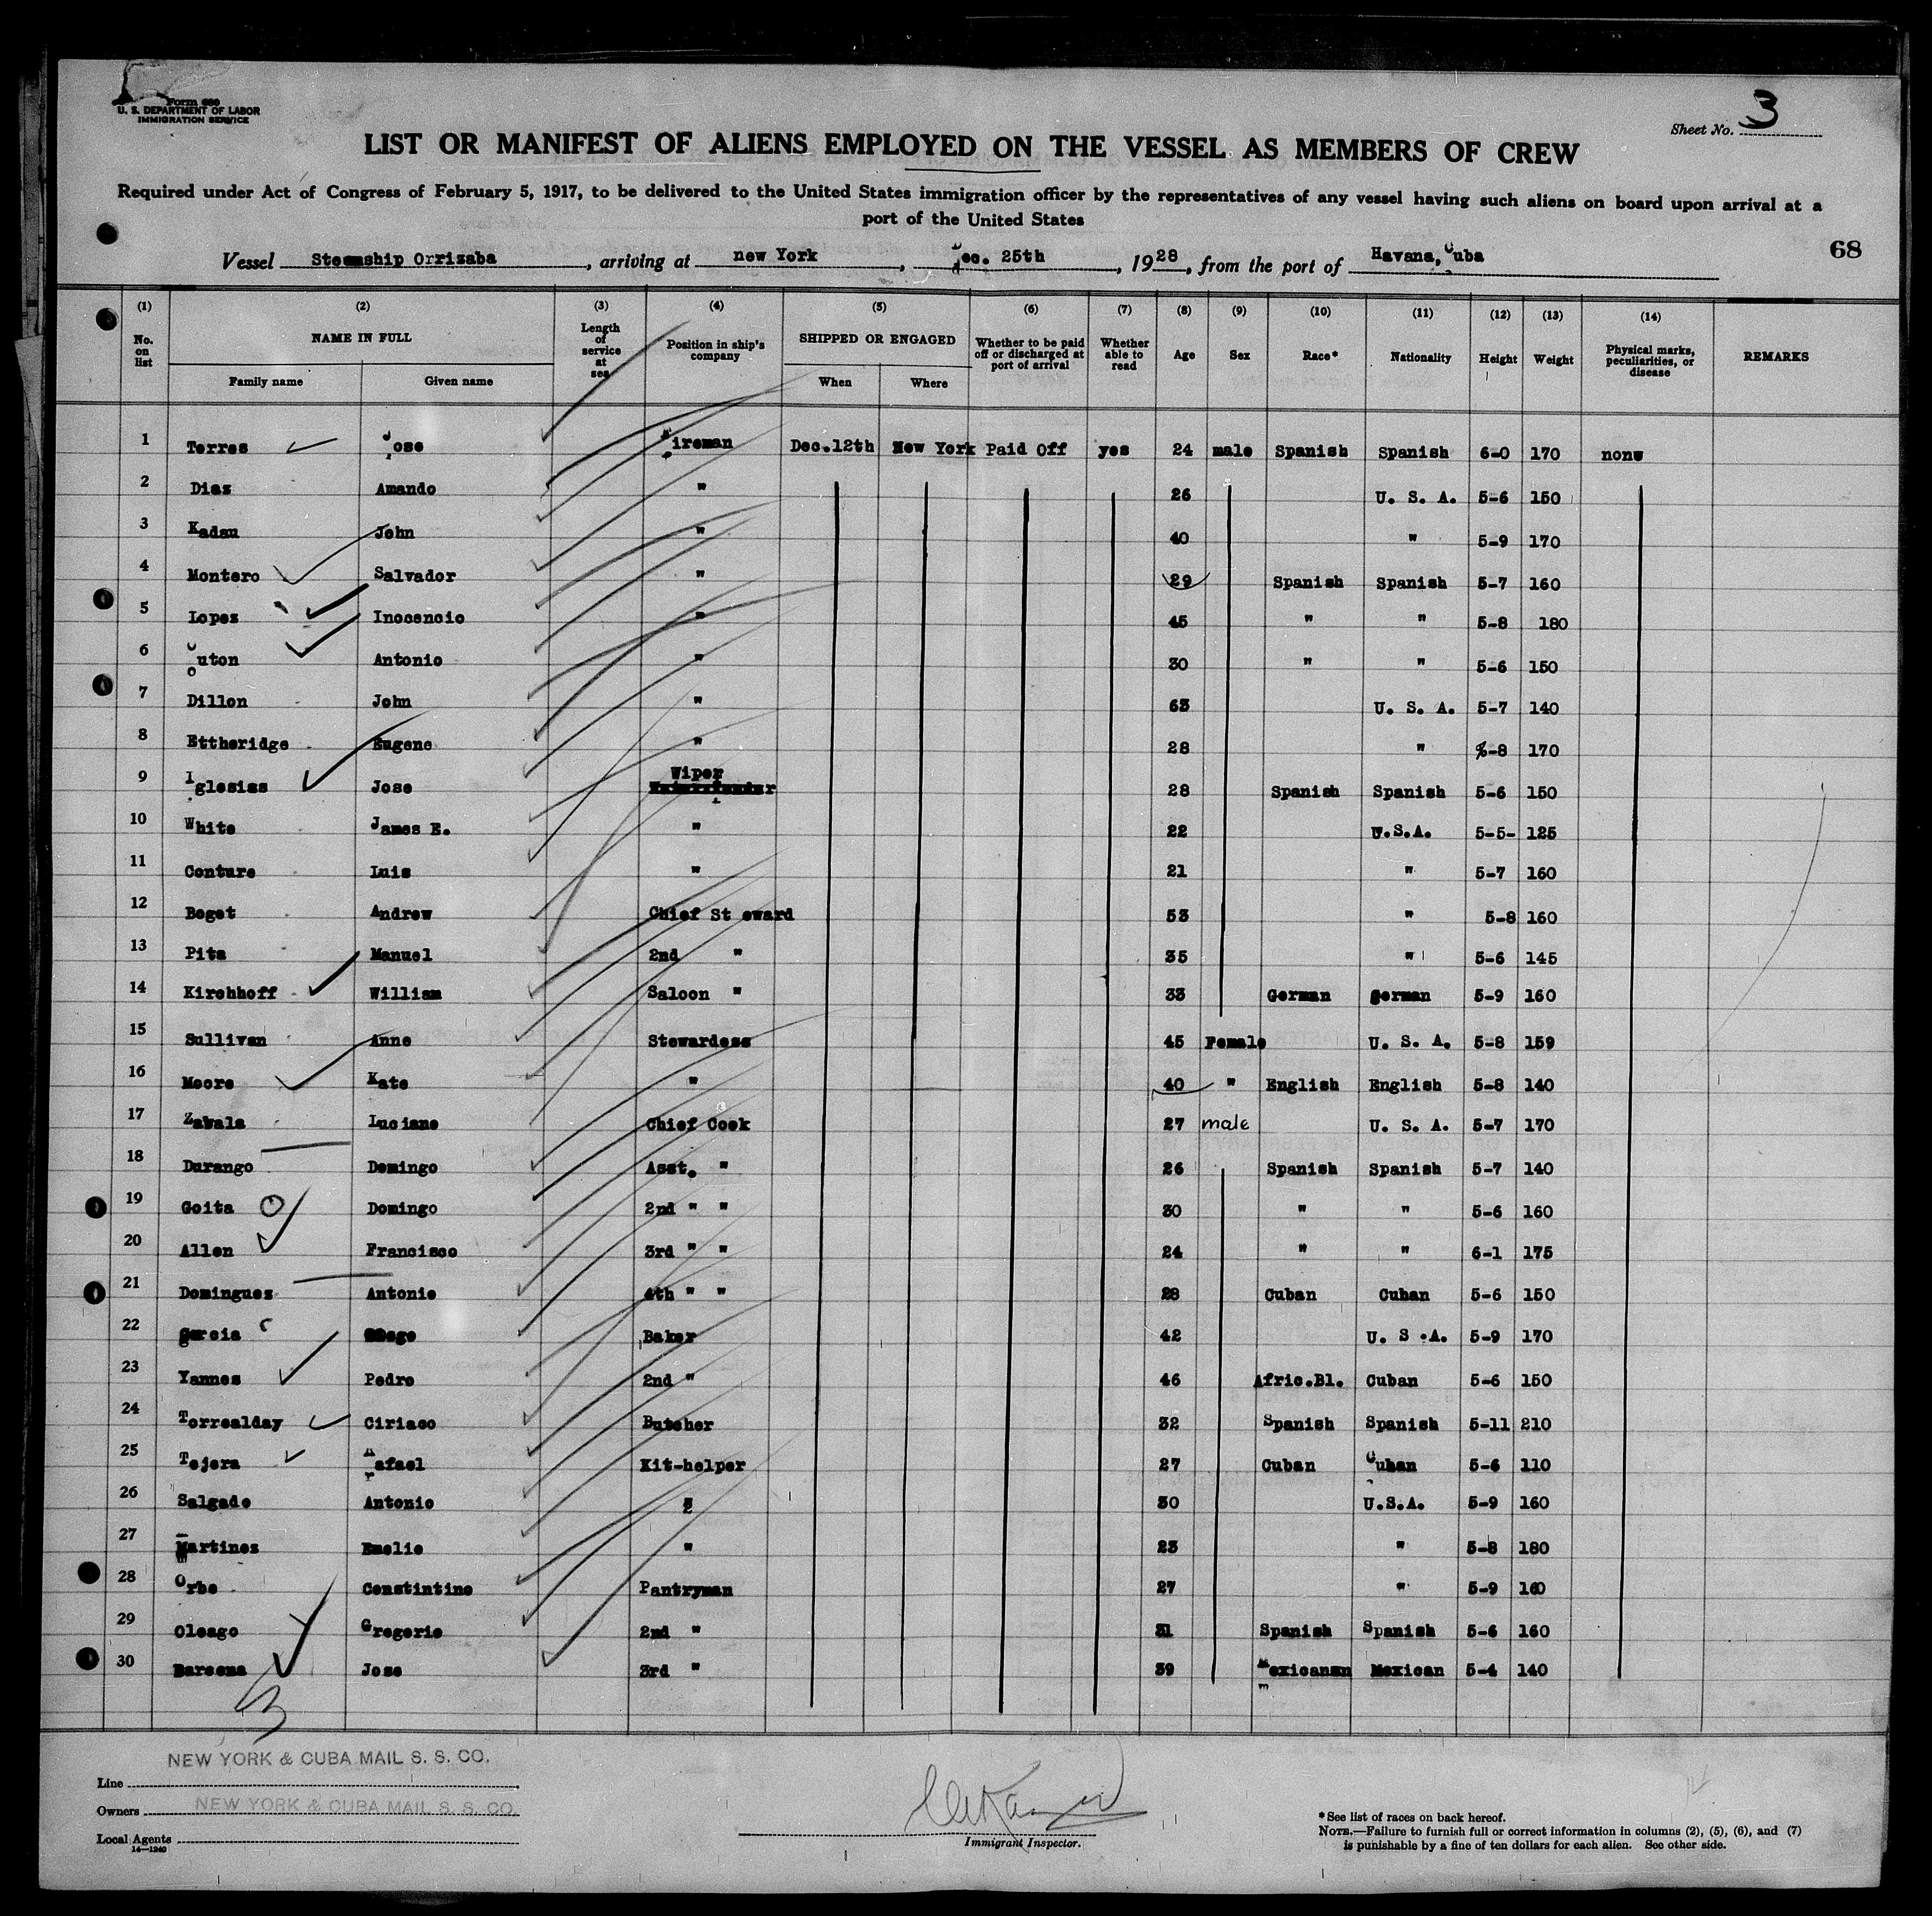 Form 680
U. S. DEPARTMENT OF LABOR
IMMIGRATION SERVICE
Sheet No. 3
LIST OR MANIFEST OF ALIENS EMPLOYED ON THE VESSEL AS MEMBERS OF CREW
Required under Act of Congress of February 5, 1917, to be delivered to the United States immigration officer by the representatives of any vessel having such aliens on board upon arrival at a
port of the United States
68
Vessel Steamship Orrizaba, arriving at new York, Dec. 25th, 1928, from the port of Havana, Cuba
(1) (2) (3) (4) (5) (6) (7) (8) (9) (10) (11) (12) (13) (14)
No. on list NAME IN FULL Family name Given name Length of service at sea Position in ship's company SHIPPED OR ENGAGED When Where Whether to be paid off or discharged at port of arrival Whether able to read Age Sex Race* Nationality Height Weight Physical marks, peculiarities, or disease REMARKS
1 Torres Jose Fireman Dec.12th New York Paid Off yes 24 male Spanish Spanish 6-0 170 none
2 Diaz Amando " 26 U. S. A. 5-6 150
3 Kadau John " 40 " 5-9 170
4 Montero Salvador " 29 Spanish Spanish 5-7 160
5 Lopez Inocencio " 45 " " 5-8 180
6 Outon Antonio " 30 " " 5-6 150
7 Dillon John " 63 U. S. A. 5-7 140
8 Ettheridge Eugene " 28 " 5-8 170
9 Iglesias Jose Wiper 28 Spanish Spanish 5-6 150
10 White James E. " 22 U.S.A. 5-5- 125
11 Conture Luis " 21 " 5-7 160
12 Boget Andrew Chief St eward 53 " 5-8 160
13 Pita Manuel 2nd " 35 " 5-6 145
14 Kirchhoff William Saloon " 33 German german 5-9 160
15 Sullivan Anne Stewardess 45 Female U. S. A. 5-8 159
16 Moore Kate " 40 " English English 5-8 140
17 Zabala Luciano Chief Cook 27 male U. S. A. 5-7 170
18 Durango Domingo Asst. " 26 Spanish Spanish 5-7 140
19 Goita Domingo 2nd " " 30 " " 5-6 160
20 Allen Francisco 3rd " " 24 " " 6-1 175
21 Dominguez Antonio 4th " " 28 Cuban Cuban 5-6 150
22 garcia Baker 42 U. S .A. 5-9 170
23 Yannes Pedro 2nd " 46 Afric.Bl. Cuban 5-6 150
24 Torrealday Ciriaco Butcher 32 Spanish Spanish 5-11 210
25 Tejera Rafael Kit-helper 27 Cuban Cuban 5-6 110
26 Salgado Antonio " 30 U.S.A. 5-9 160
27 Martinez Emelio " 23 " 5-8 180
28 Orbe Constintino Pantryman 27 " 5-9 160
29 Oleago Gregorio 2nd " 31 Spanish Spanish 5-6 160
30 Barcena Jose 3rd " 39 Mexicanan Mexican 5-4 140
3
NEW YORK & CUBA MAIL S. S. CO.
Line
Owners NEW YORK & CUBA MAIL S. S. CO.
Local Agents
14—1240
Immigrant Inspector.
* See list of races on back hereof.
NOTE.—Failure to furnish full or correct information in columns (2), (5), (6), and (7)
is punishable by a fine of ten dollars for each alien. See other side.